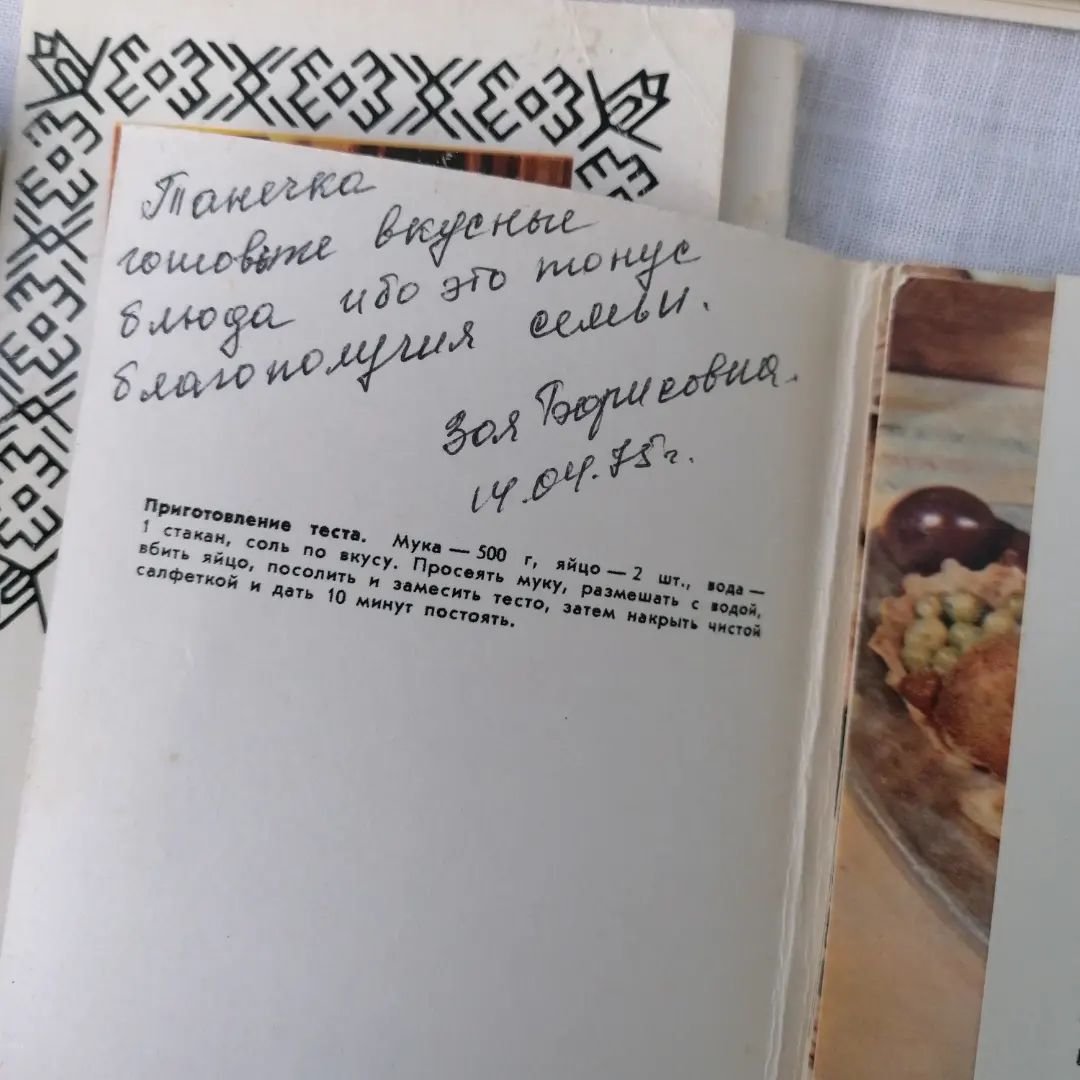 Танечка
готовьте вкусные
блюда ибо это тонус
благополучия семьи.
Зоя Борисовна.
14.04.75 г.
Приготовление теста. Мука — 500 г, яйцо — 2 шт., вода —
1 стакан, соль по вкусу. Просеять муку, размешать с водой,
вбить яйцо, посолить и замесить тесто, затем накрыть чистой
салфеткой и дать 10 минут постоять.